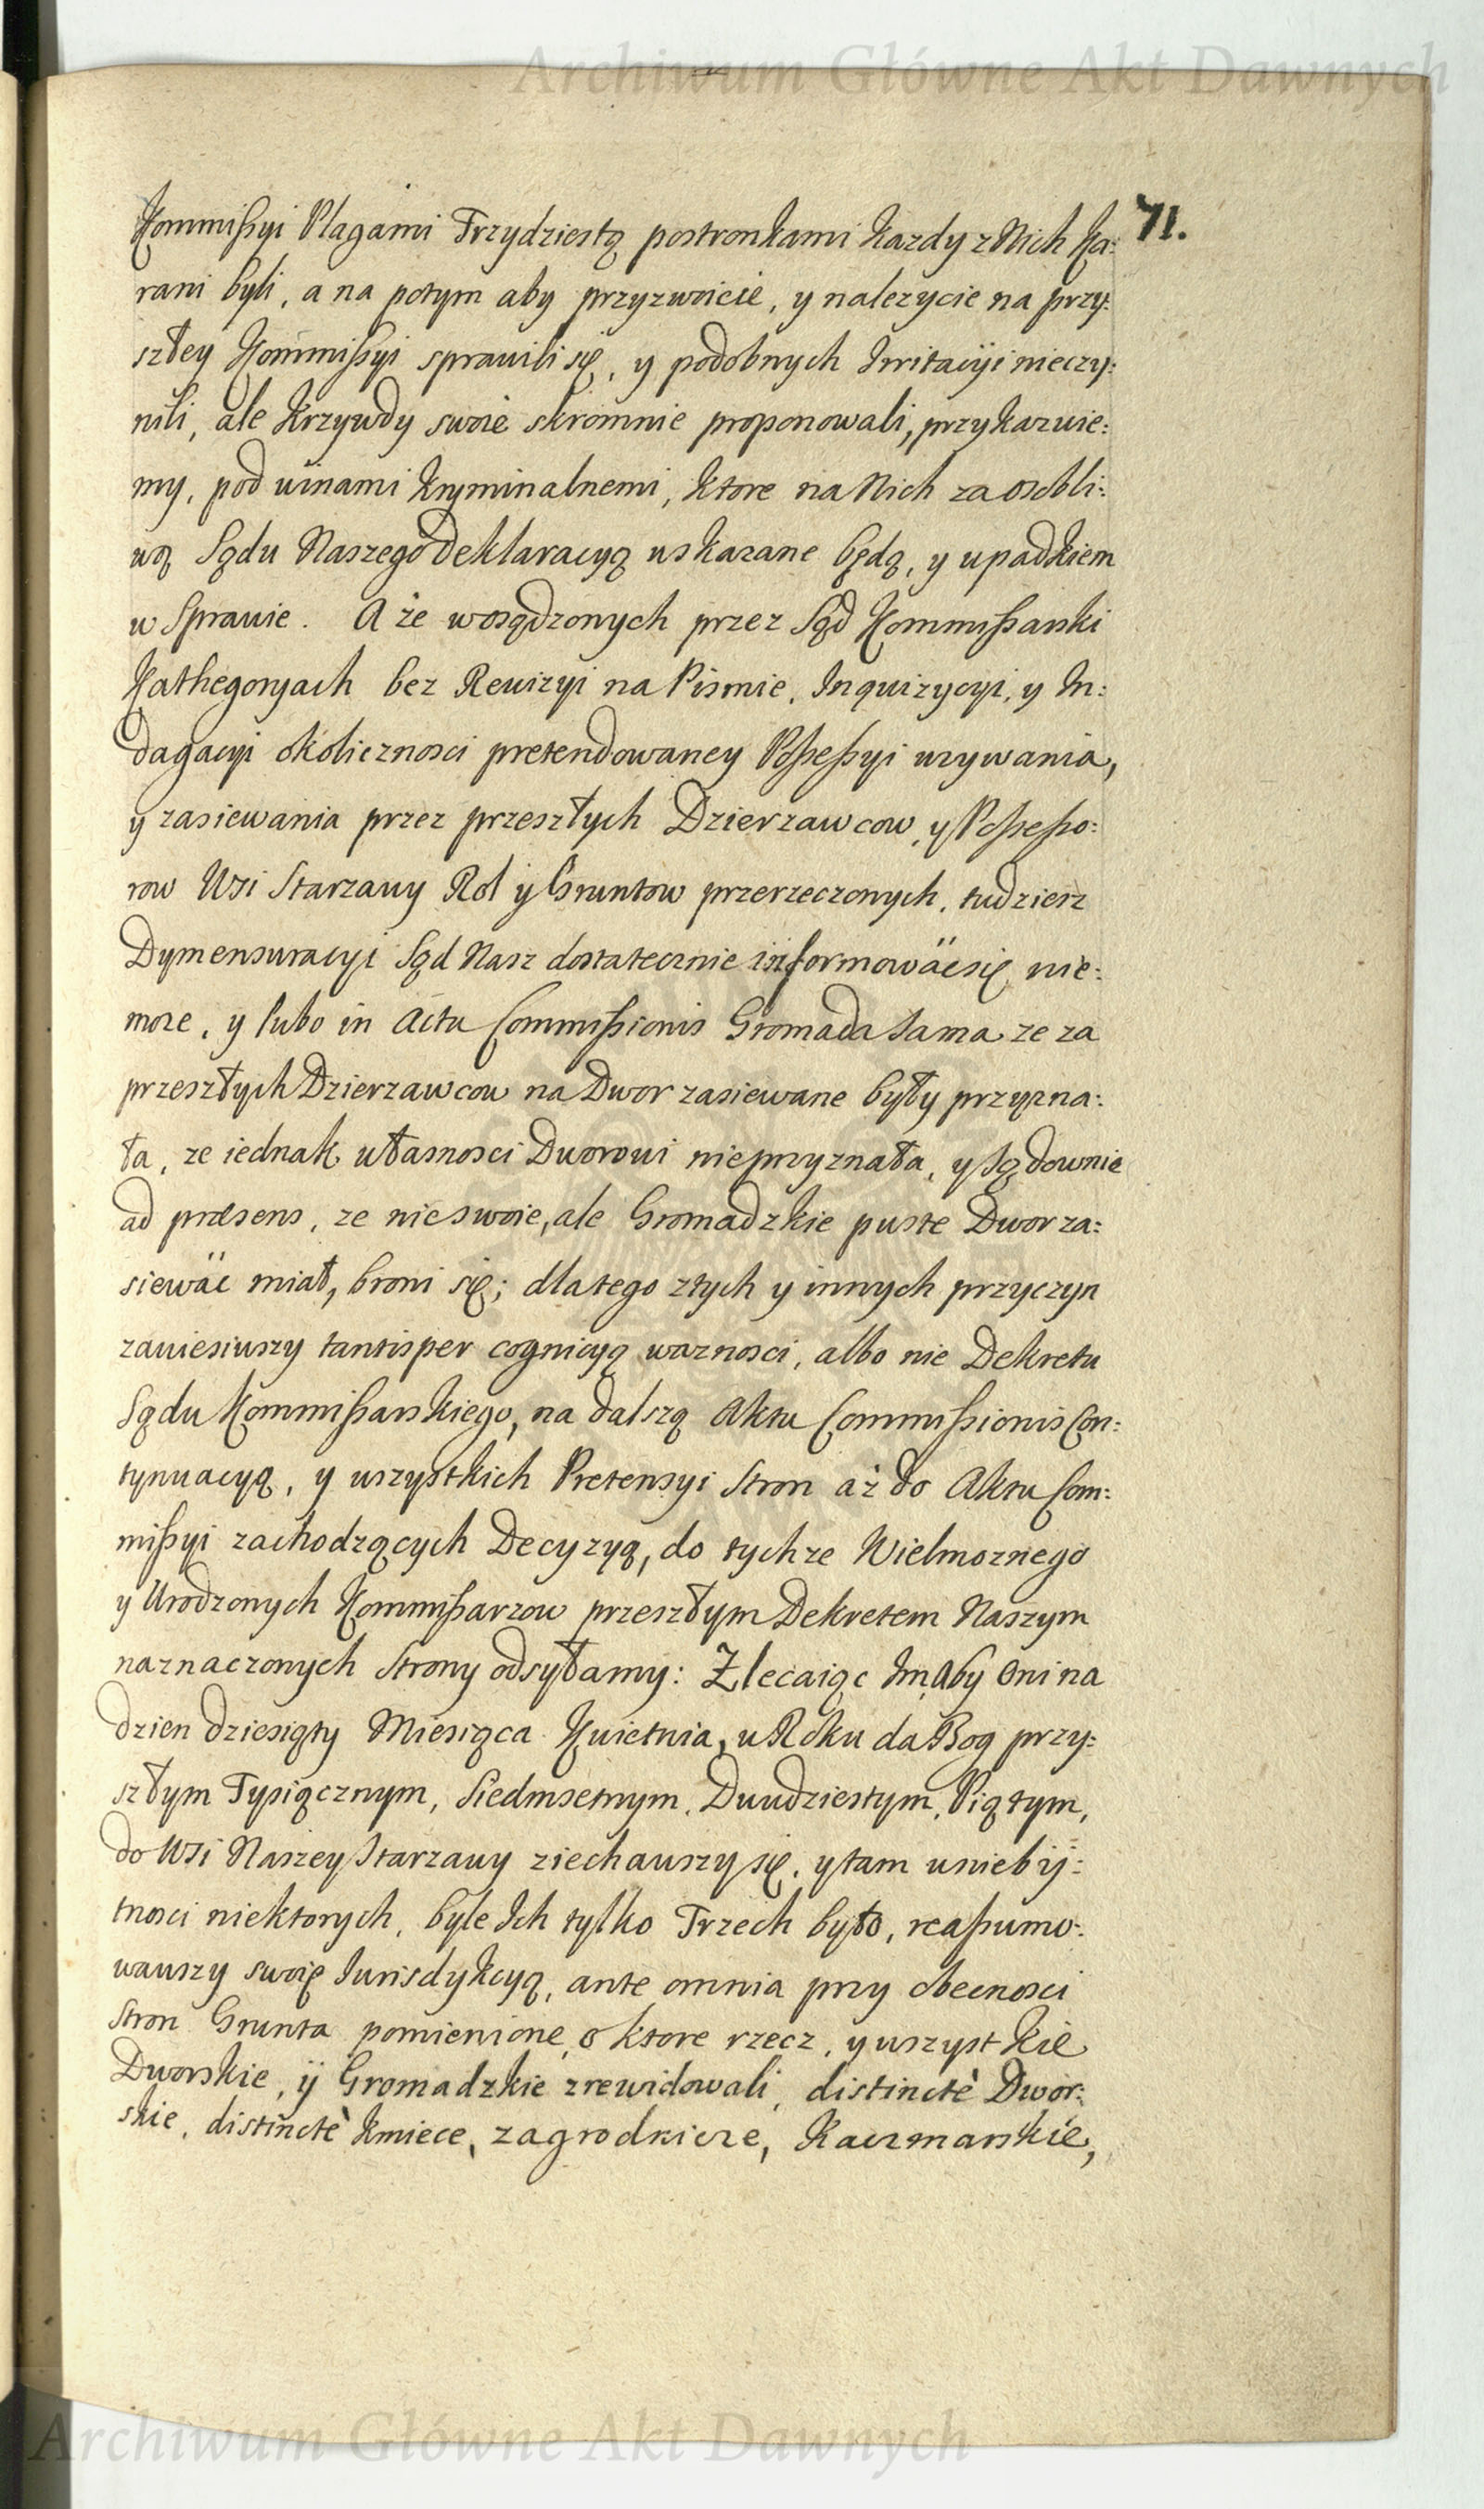 Archiwum Główne Akt Dawnych
71.
Kommißyi Plagami Trzydziestą postronkami kazdy z Nich ka:
rani byli, a na potym aby przyzwoicie, y nalezycie na przy:
szłey Kommißyi sprawili się, y podobnych Irritacyi nieczy:
nili, ale Krzywdy swoie skromnie proponowali, przykazuie:
my, pod winami kryminalnemi, ktore na Nich za osobli:
wą Sądu Naszego Deklaracyą uskazane będą, y upadkiem
w Sprawie. A że w osądzonych przez Sąd Kommißarski
Kathegoryach bez Rewizyi na Pismie, Inquizycyi, y In:
dagacyi okolicznosci pretendowaney Poßeßyi uzywania,
y zasiewania przez przeszłych Dzierzawcow, y Poßeßo:
row Wsi Starzawy Rol y Gruntow przerzeczonych, tudziesz
Dymensuracyi Sąd Nasz dostatecznie informowac się nie:
moze, y lubo in Actu Commißionis Gromada sama ze za
przeszłych Dzierzawcow na Dwor zasiewane były przyzna:
ła, ze iednak własnosci Dworowi nieprzyznała, y sądownie
ad præsens, ze nie swoie, ale Gromadzkie puste Dwor za:
siewać miał, broni się; dlatego z tych y innych przyczyn
zawiesiwszy tantisper cognicyą waznosci, albo nie Dekretu
Sądu Kommißarskiego, na dalszą Aktu Commißionis Con:
tynuacyą, y wszystkich Pretensyi Stron aż do Aktu Com:
mißyi zachodzących Decyzyą, do tychze Wielmoznego
y Urodzonych Kommißarzow przeszłym Dekretem Naszym
naznaczonych Strony odsyłamy: Zlecaiąc Im aby oni na
dzien dziesiąty Miesiąca Kwietnia, w Roku da Bog przy:
szłym Tysiącznym, Siedmsetnym, Dwudziestym, Piątym,
do Wsi Naszey Starzawy ziechawszy się, y tam w niebÿ:
tnosci niektorych, byle Ich tylko Trzech było, reaßumo:
wawszy swoię Iurisdykcyą, ante omnia przy obecnosci
Stron Grunta pomienione, o ktore rzecz, y wszystkie
Dworskie, ÿ Gromadzkie zrewidowali, distinctè Dwor:
skie, distinctè kmiece, zagrodnicze, Kaczmarskie,
Archiwum Główne Akt Dawnych